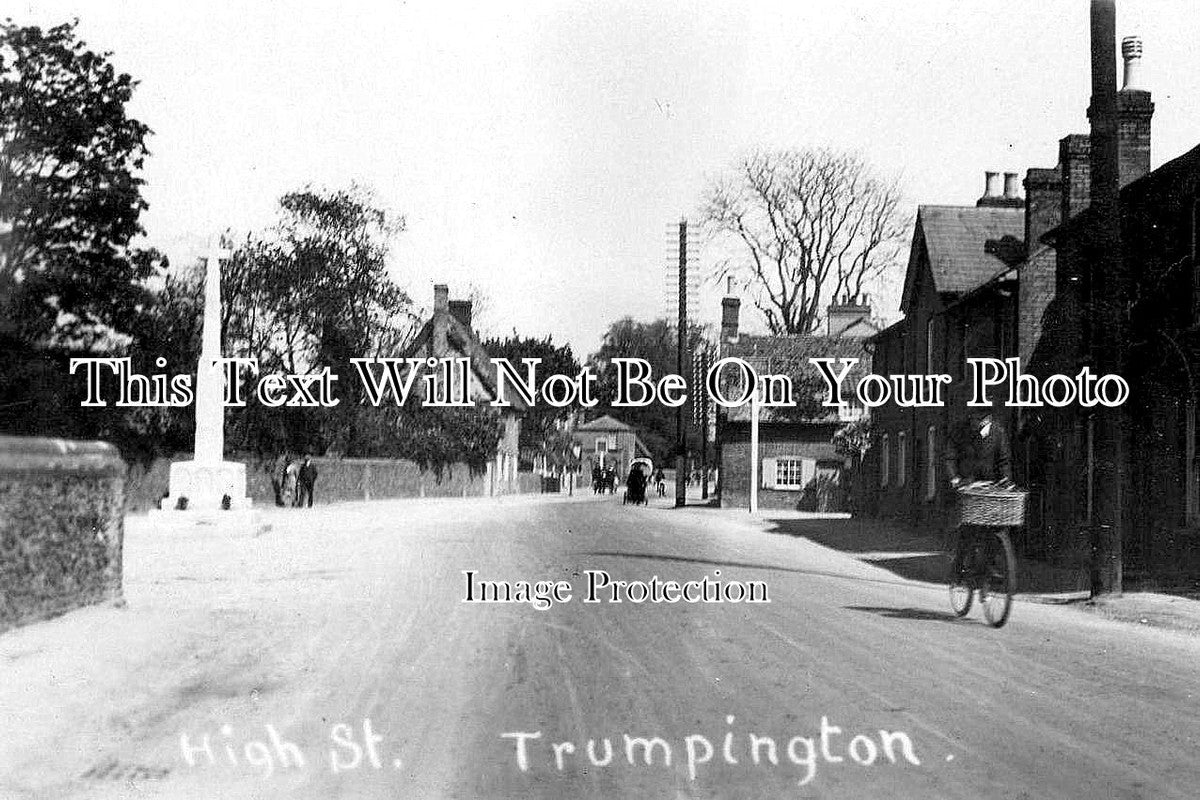 This Text Will Not Be On Your Photo
Image Protection
High St. Trumpington.